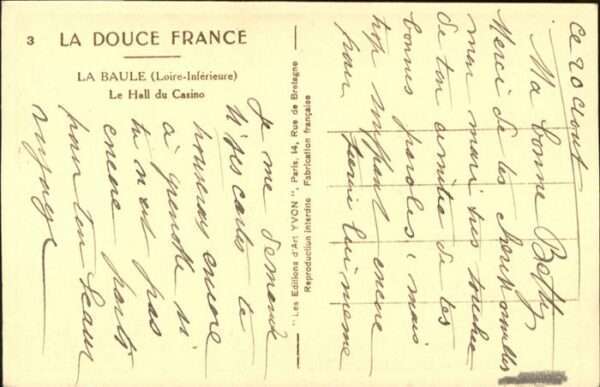 3 LA DOUCE FRANCE
LA BAULE (Loire-Inférieure)
Le Hall du Casino
"Les Editions d'Art YVON", Paris, 14, Rue de Bretagne
Reproduction interdite Fabrication française
ce 20 Aout
Ma bonne Betty
Merci de tes
mon mari très touché
de ton amitié de tes
bonnes paroles, mais
trop souffrant encore
pour lui meme
Je me demande
si ses cartes te
trouveront encore
à
tu n'est pas
encore partie
pour ton beau
voyage